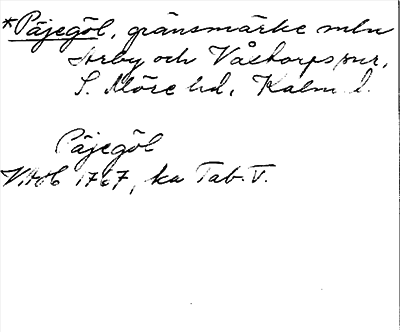 *Päjegöl, gränsmärke mln
Arby och Våstorps snr,
S. Möre hd, Kalm. l.
Päjegöl
1767, ka Tab. V.